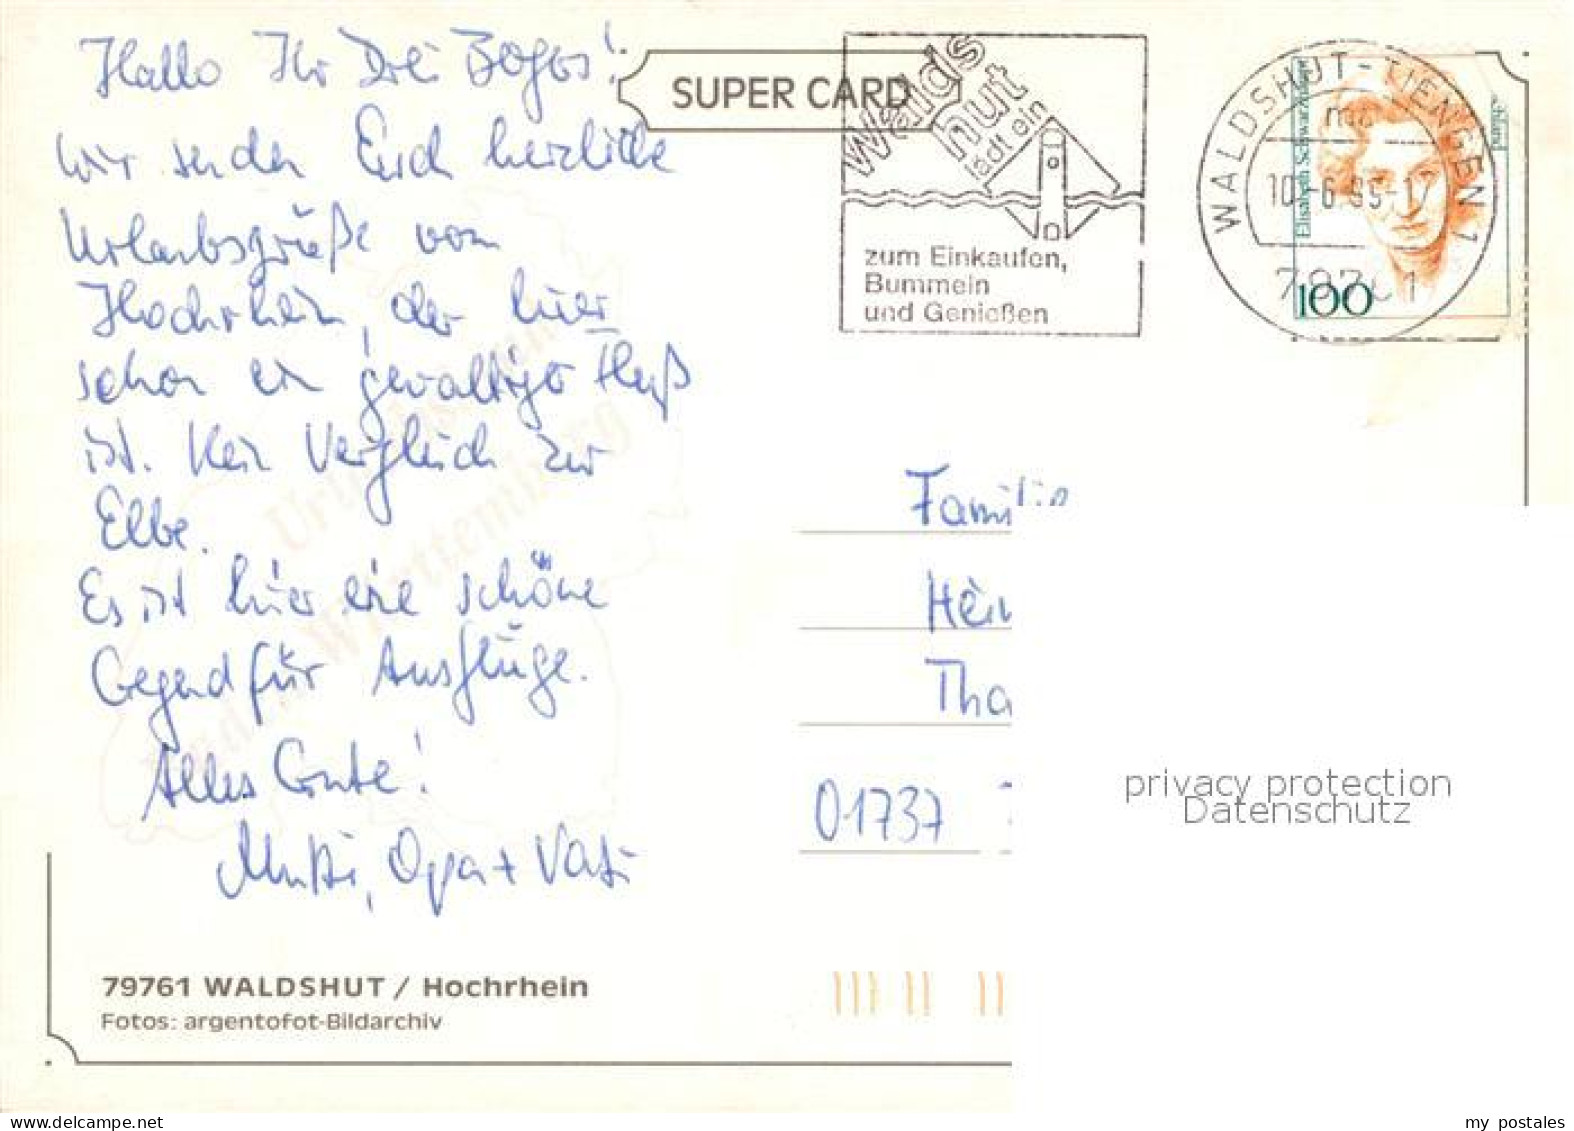 Hallo Ihr Drei
wir senden Euch herzliche
Urlaubsgrüße vom
Hochrhein, der hier
schon ein gewaltiger Fluß
ist. Kein Vergleich zur
Elbe.
Es ist hier eine schöne
Gegend für Ausflüge.
Alles Gute!
Mutti, Opa + Vati
79761 WALDSHUT / Hochrhein
Fotos: argentofot-Bildarchiv
SUPER CARD
Walds
hut
lädt ein
zum Einkaufen,
Bummeln
und Genießen
WALDSHUT-TIENGEN 1
Elisabeth Schwarzhaupt
100
Familie
Hein
Tha
01737
privacy protection
Datenschutz
my postales
www.delcampe.net